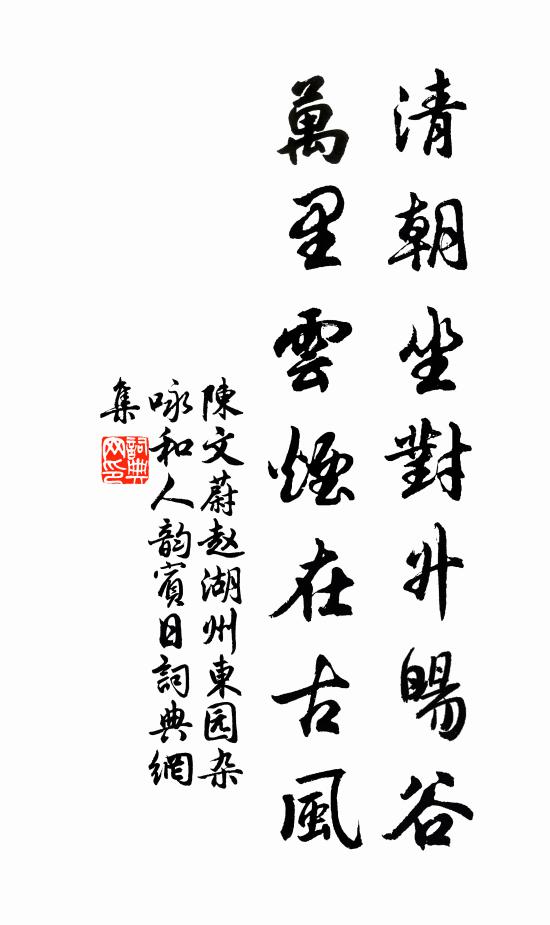 清朝坐對升暘谷
萬里雲煙在古風
陳文蔚赵湖州東园杂
咏和人韵賓日詞典網
集
詞典網印